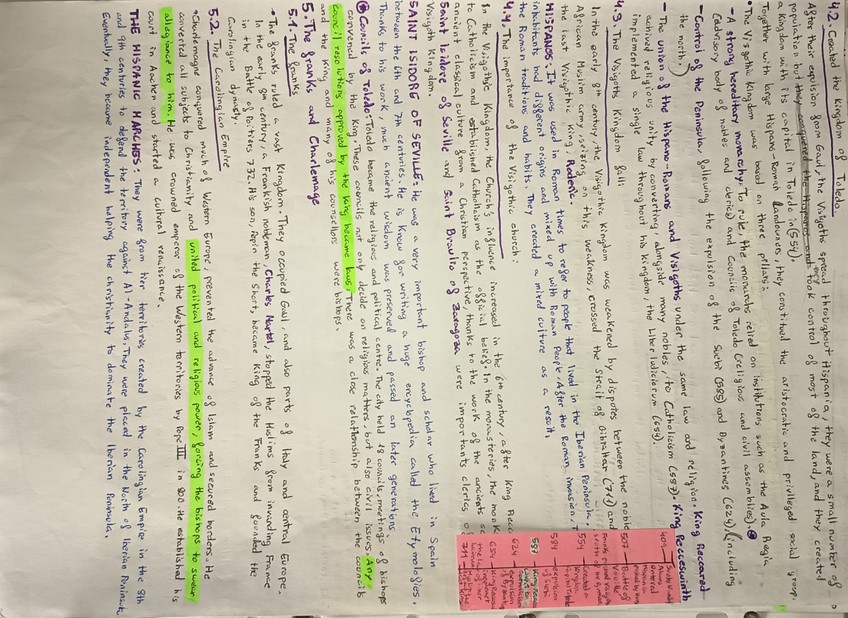 4.2. Created the Kingdom of Toledo
After their expulsion from Gaul, the Visigoths spread throughout Hispania, they were a small number of
population but they conquered the Hispanic and took control of most of the land, and they created
a Kingdom with its capital in Toledo in (554).
Together with large Hispano-Roman landowners, they constitued the aristocratic and privileged social group.
• The Visigothic Kingdom was based on three pillars:
- A strong hereditary monarchy. To rule, the monarchs relied on institutions such as the Aula Regia
(advisory body of nobles and clerics) and Councils of Toledo (religious and civil assemblies).
- Control of the Peninsula, following the expulsion of the Suebi (585) and Byzantines (624) (including
the north.)
- The union of the Hispano-Romans and Visigoths under the same law and religion. King Reccared
achived religious unity by converting, alongside many nobles, to Catholicism (587). King Recceswinth
implemented a single law throughout his Kingdom, the Liber Iudiciorum (654).
4.3. The Visigoths Kingdom fall:
In the early 8th century, the Visigothic Kingdom was weakened by dispores between the noble
African Muslim army, seizing on this weakness, crossed the Strait of Gibraltar (711) and
the last Visigothic King, Roderic.
HISPANOS: It was used in Roman times to refer to people that lived in the Iberian Peninsula.
inhabitants had different origins and mixed up with Roman People. After the Roman invasion, T
the Roman traditions and habits. They created a mixed culture as a result.
4.4. The importance of the Visigothic church:
In the Visigothic Kingdom, the Church's influence increased in the 6th century, after King Recc
to Catholicism and established Catholicism as the official belief. In the monasteries, the monk
ancient classical culture from a Christian perspective, thanks to the work of the ancients sc
Saint Isidore of Seville and Saint Braulio of Zaragoza were importants clerics of
Visigoth Kingdom.
SAINT ISIDORE OF SEVILLE: He was a very important bishop and scholar who lived in Spain
between the 6th and 7th centuries. He is Know for writing a huge encyclopedia called the Etymologies.
Thanks to his work, much ancient wisdom was preserved and passed on later generations
Councils of Toledo: Toledo became the religious and political centre. The city held 18 councils, meetings of bishops
convened by the King. These councils not only decide on religious matters, but also civil issues. Any
council resolutions approved by the King became laws. There was a close relationship between the councils
and the King and many of his counsellors were bishops.
5. The franks and Charlemagne
5.1. The franks
• The franks ruled a vast Kingdom. They occupied Gaul, and also parts of Italy and central Europe.
In the early 8th century, a Frankish nobleman, Charles Martel, stopped the Muslims from invanding France
in the Battle of Poitiers, 732. His son, Pepin the Short, became King of the Franks and founded the
Carolingian dynasty.
5.2. The Carolingian Empire
• Charlemagne conquered much of Western Europe, prevented the advance of Islam and secured borders. He
converted all subjects to Christianity and united political and religious power, forcing the bishops to swear
allegiance to him. He was crowned emperor of the Western territories by Pope III in 800. He established his
court in Aachen and started a cultural renaissance.
THE HISPANIC MARCHES: They were frontier territories created by the Carolingian Empire in the 8th
and 9th centuries to defend the territory against Al-Andalus. They were placed in the North of Iberian Peninsula.
Eventually, they became independent helping the christianity to dominate the Iberian Peninsula.
409
507
Battle of
554
Created
Kingdom
584
expulsion
587
King Recc
624
expulsion
654
711